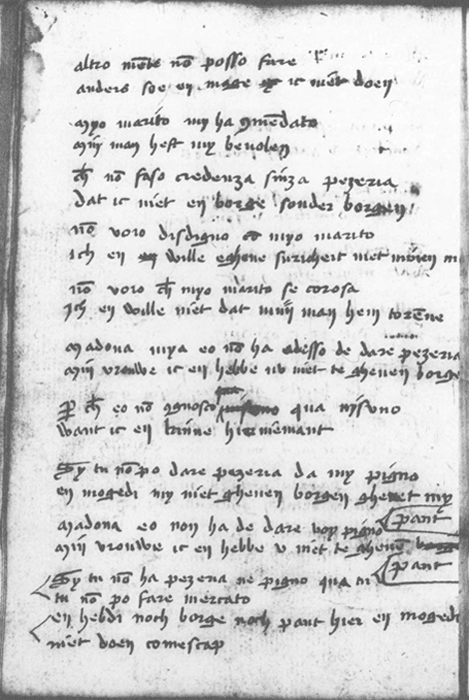 altro mēte nō posso fare
anders soe en mage ic niet doen
myo marito my ha 9mēdato
mijn man heft my bevolen
ch̄ nō faso credenza sinza pezeria
dat ic niet en borge sonder borgen
nō voro disdigno co myo marito
Ich en wille eghene suricheit met mynen m
nō voro ch̄ myo marito se corosa
Ich en wille niet dat mijn man hem torene
Madona mya eo nō ha adesso de dare pezeria
Mijn vrouwe ic en hebbe nv niet te gheven borge
ꝑ ch̄ eo nō 9gnosco qua nisuno
want ic en kinne hier niemant
Sy tu nō po dare pezeria da my pigno
en mogedi my niet gheven borgen ghevet my
pant
Madona eo non ha de dare voy pigno
Mijn vrouwe ic en hebbe v niet te ghevē
pant
Sy tu nō ha pezeria ne pigno qua ti
tu nō po fare mercato
en hebdi noch borge noch pant hier en mogedi
niet doen comescap